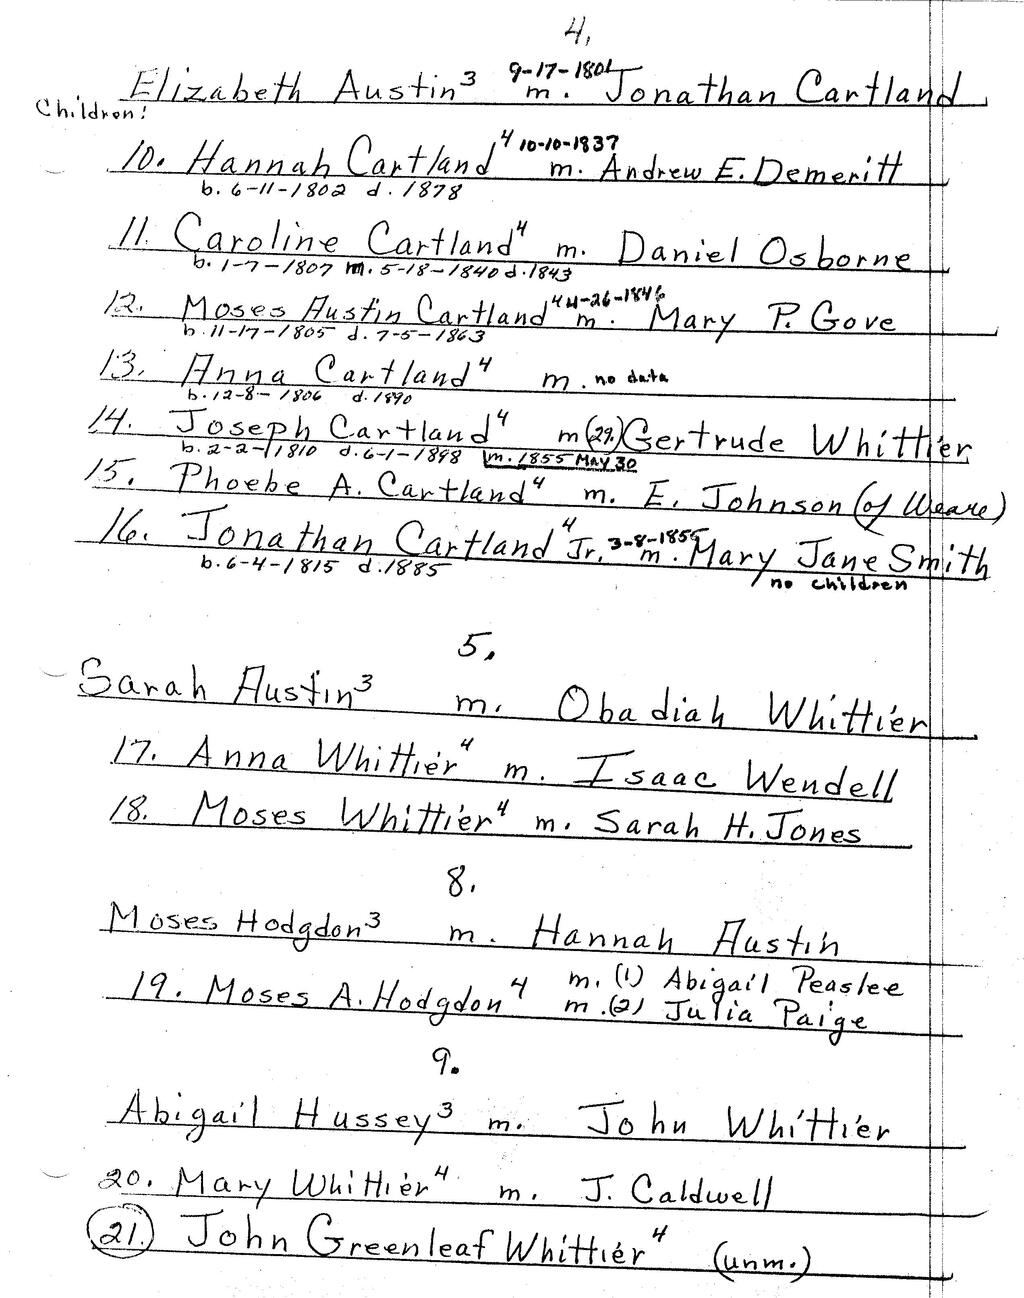 4.
9-17-1801
Elizabeth Austin³ m. Jonathan Cartland
Children:
10. Hannah Cartland⁴ 10-10-1837 m. Andrew E. Demeritt
b. 6-11-1802 d. 1878
11. Caroline Cartland⁴ m. Daniel Osborne
b. 1-7-1807 m. 5-18-1840 d. 1843
12. Moses Austin Cartland⁴ 4-26-1846 m. Mary P. Gove
b. 11-17-1805 d. 7-5-1863
13. Anna Cartland⁴ m. no data
b. 12-8-1806 d. 1890
14. Joseph Cartland⁴ m (29.) Gertrude Whittier
b. 2-2-1810 d. 6-1-1898 m. 1855 May 30
15. Phoebe A. Cartland⁴ m. E. Johnson (of Weare)
16. Jonathan Cartland⁴ Jr. 3-8-1855 m. Mary Jane Smith
b. 6-4-1815 d. 1885 no children
5.
Sarah Austin³ m. Obadiah Whittier
17. Anna Whittier⁴ m. Isaac Wendell
18. Moses Whittier⁴ m. Sarah H. Jones
8.
Moses Hodgdon³ m. Hannah Austin
19. Moses A. Hodgdon⁴ m. (1) Abigail Peaslee
m. (2) Julia Paige
9.
Abigail Hussey³ m. John Whittier
20. Mary Whittier⁴ m. J. Caldwell
21. John Greenleaf Whittier⁴ (unm.)